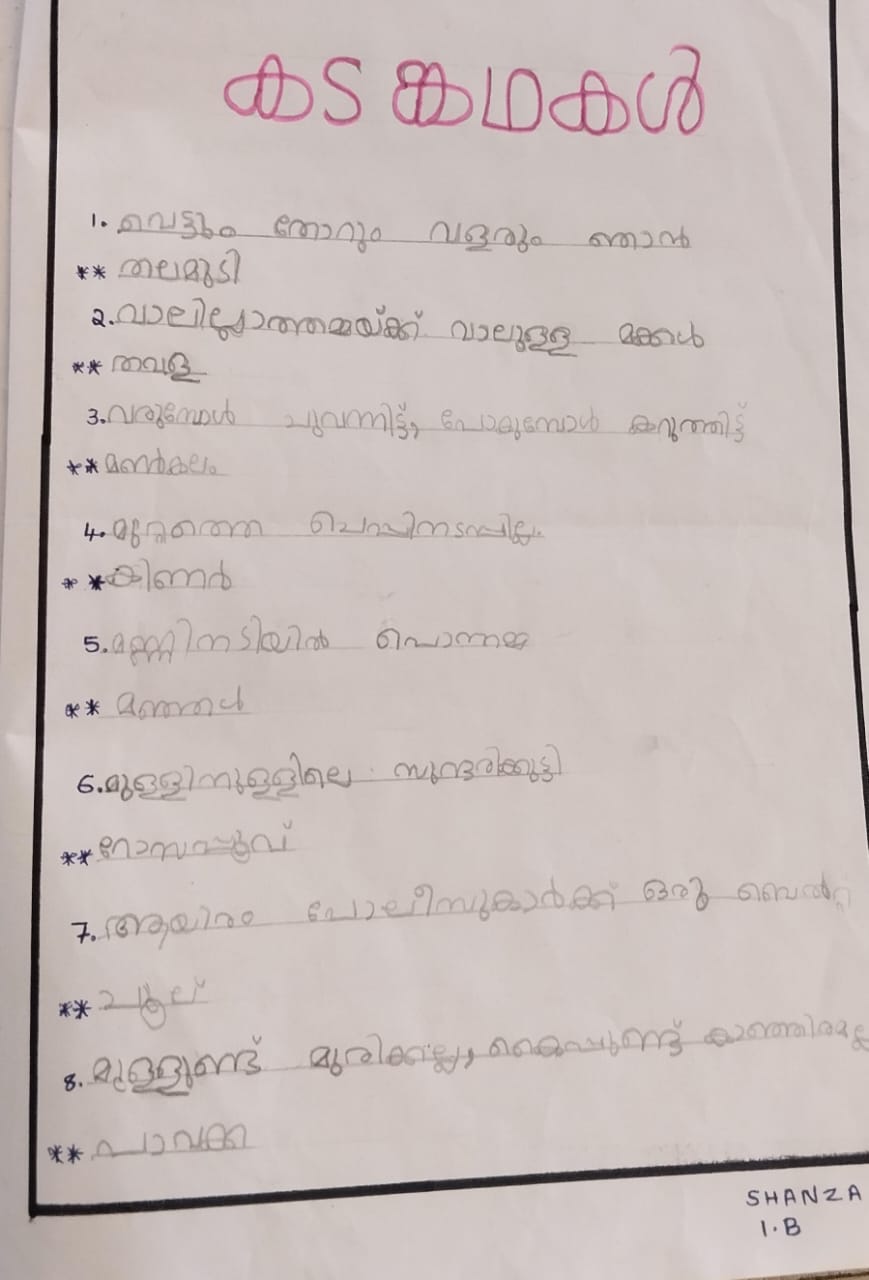 കടങ്കഥകൾ
1. വെട്ടും തോറും വളരും ഞാൻ
** തലമുടി
2. വാലില്ലാത്തമ്മയ്ക്ക് വാലുള്ള മക്കൾ
** തവള
3. വരുമ്പോൾ ചുവന്നിട്ട്, പോകുമ്പോൾ കറുത്തിട്ട്
** മൺകലം
4. മുറ്റത്തെ ചെപ്പിനടപ്പില്ല
** കിണർ
5. മണ്ണിനടിയിൽ പൊന്നമ്മ
** മഞ്ഞൾ
6. മുള്ളിനുള്ളിലെ സുന്ദരിക്കുട്ടി
** റോസാപ്പൂവ്
7. ആയിരം പോലീസുകാർക്ക് ഒരു ബെൽറ്റ്
** ചൂല്
8. മുള്ളുണ്ട് മുരിക്കല്ല, കൈപ്പുണ്ട് കാഞ്ഞിരമല്ല
** പാവക്ക
SHANZA
1.B